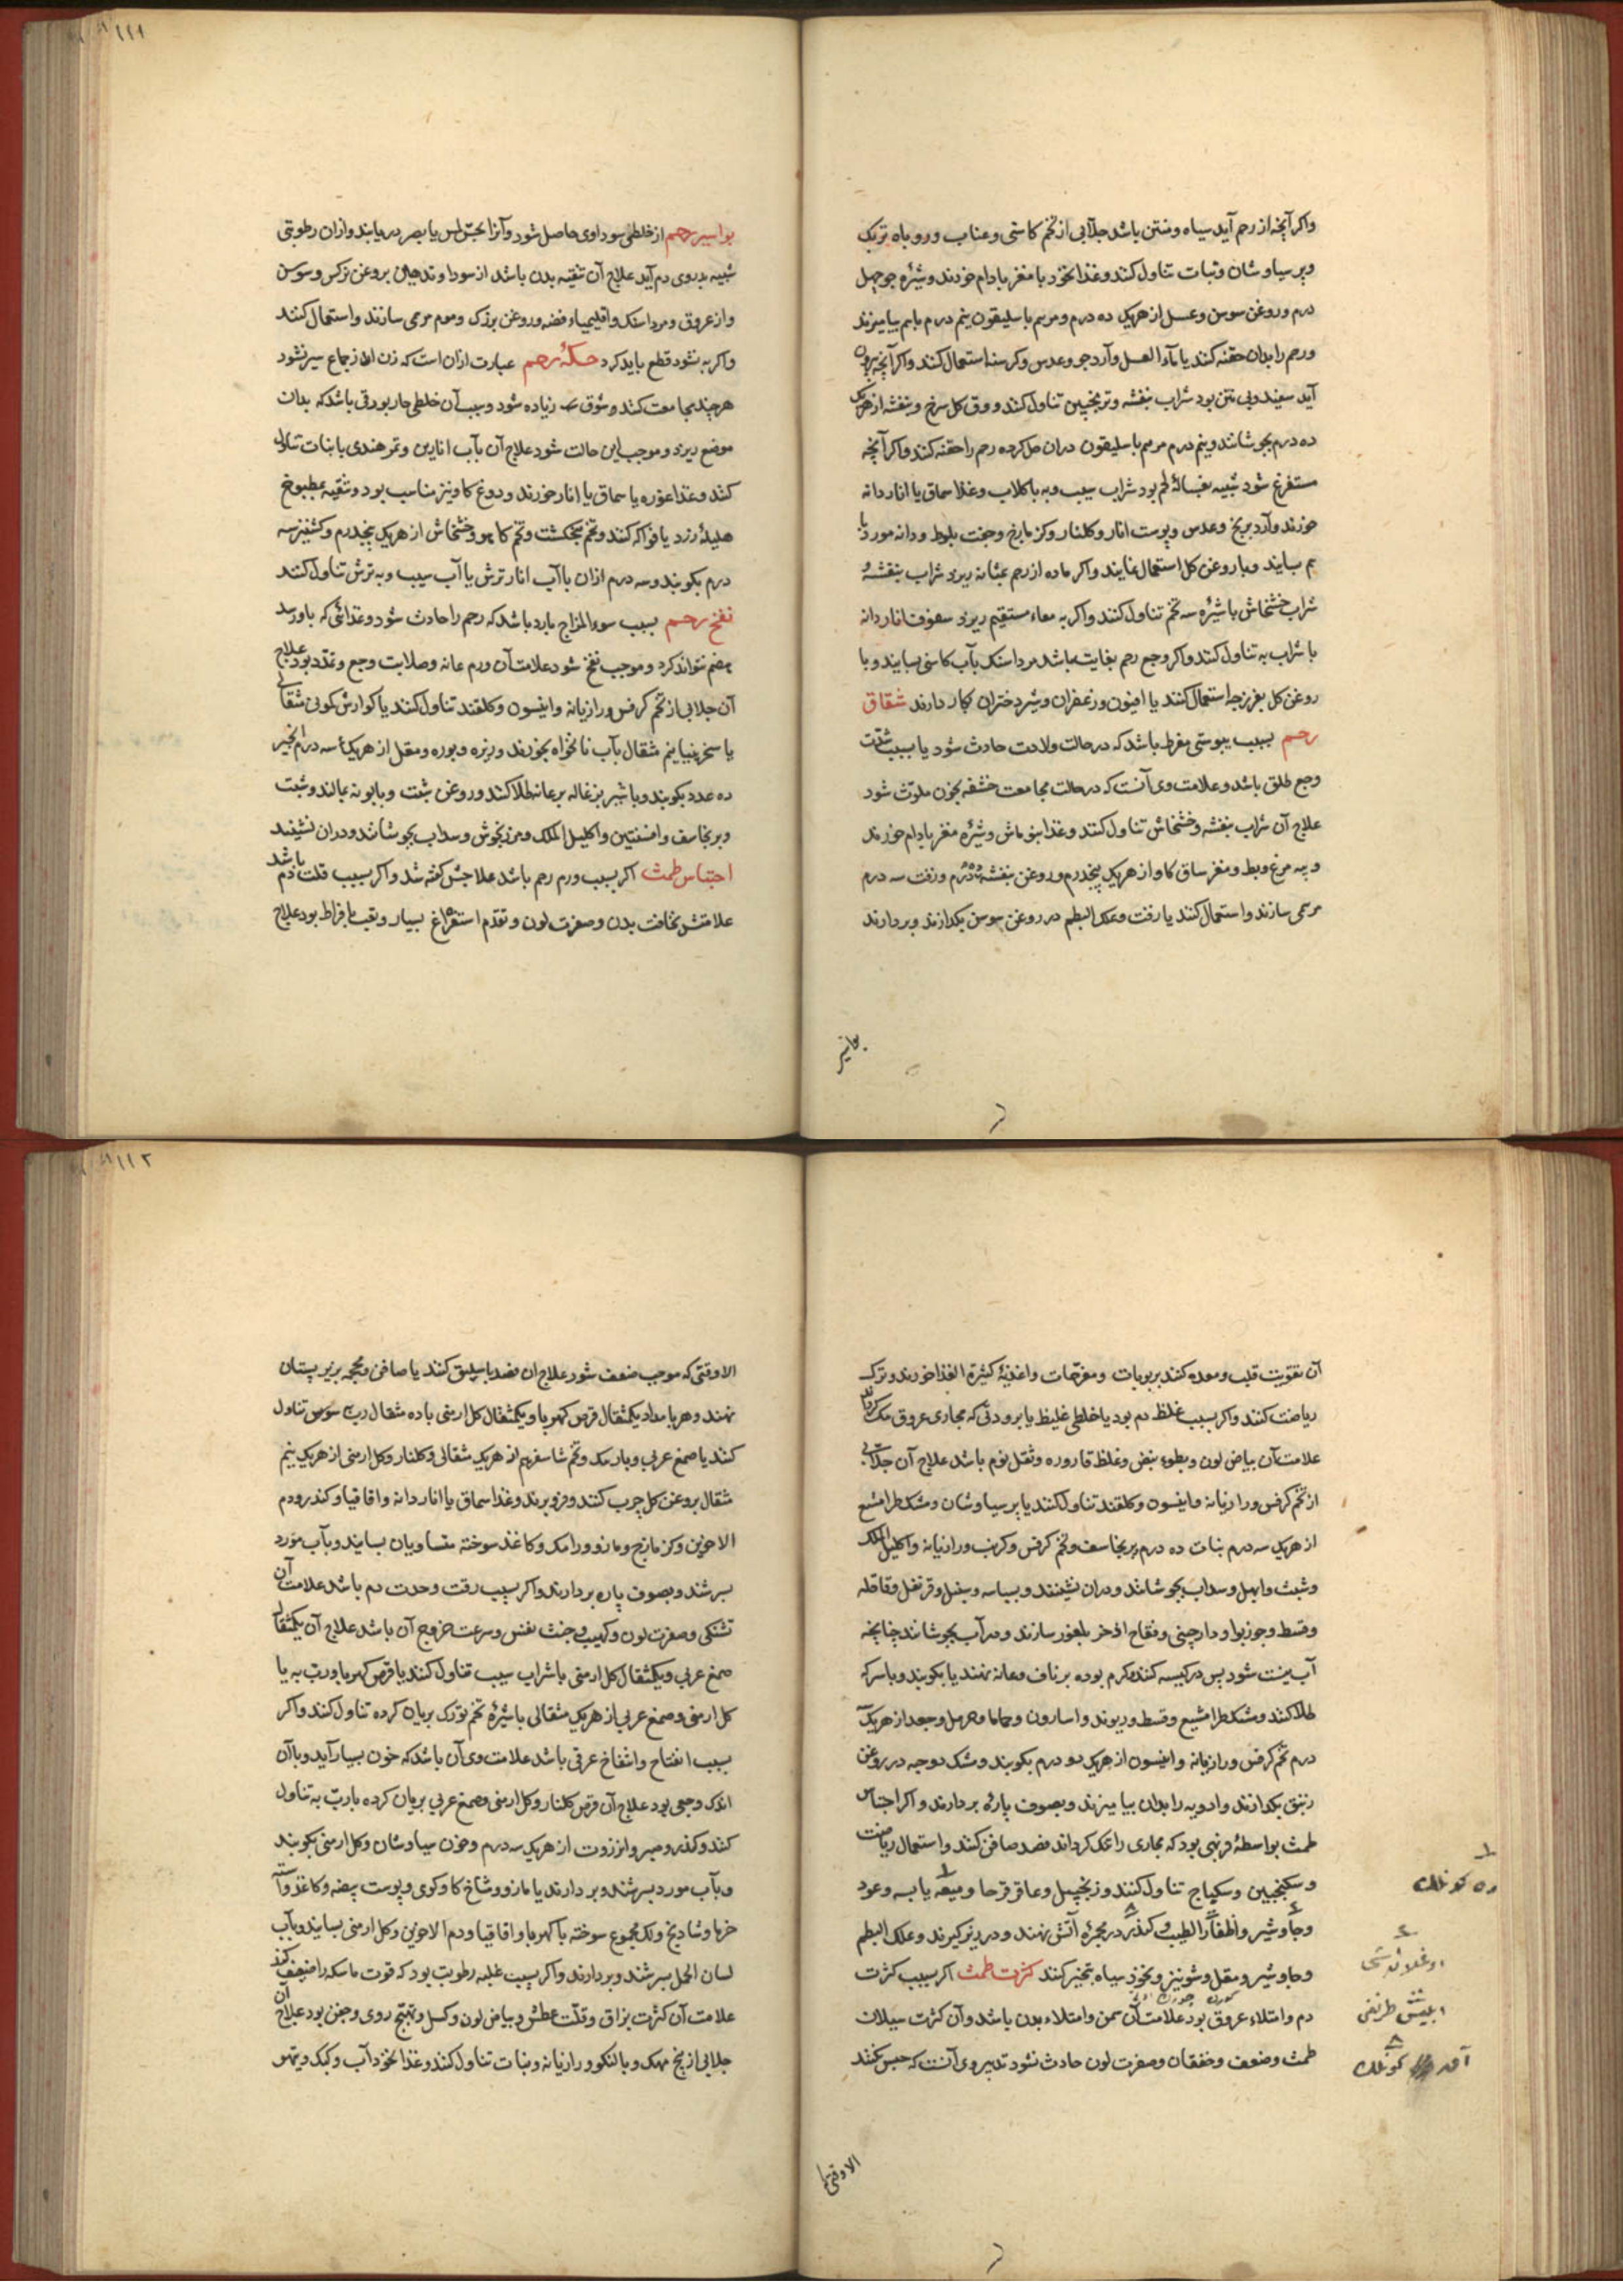 واکر آنچه از رحم آید سیاه و منتن باشد جلابی از تخم کاسنی و عناب و روباه تربک
وپرسیاوشان ونبات تناول کنند وغذا نخود با مغز بادام خورند وشیره جو چهل
درم وروغن سوسن وعسل از هریک ده درم ومرهم باسلیقون پنم درم باهم بیامیزند
ورحم را بدان حقنه کنند یا بماء العسل وآرد جو وعدس وکرسنه استعمال کنند واکر آنچه بیرون
آید سفید وبی نتن بود شراب بنفشه وترنجبین تناول کنند وورق کل سرخ وبنفشه از هریک
ده درم بجوشانند وپنم درم مرهم باسلیقون دران حل کرده رحم را حقنه کنند واکر آنچه
مستفرغ شود شبیه بغسالۀ لحم بود شراب سیب وبه باکلاب وغذا سماق یا انار دانه
خورند وآرد برنج وعدس وپوست انار وکلنار وکزمازج وجفت بلوط ودانه مورد با
هم بسایند وباروغن کل استعمال نمایند واکر ماده از رحم بمثانه ریزد شراب بنفشه و
شراب خشخاش باشیره سه تخم تناول کنند واکر به معاء مستقیم ریزد سفوف انار دانه
با شراب به تناول کنند واکر وجع رحم بغایت باشد مرداسنک بآب کاسنی بسایند وبا
روغن کل بفرزجه استعمال کنند یا افیون وزعفران وشیر دختران بکار دارند شقاق
رحم بسبب یبوستی مفرط باشد که در حالت ولادت حادث شود یا بسبب شدّت
وجع طلق باشد وعلامت وی آنست که در حالت مجامعت حشفه بخون ملوّث شود
علاج آن شراب بنفشه وخشخاش تناول کنند وغذا بنو ماش وشیره مغز بادام خورند
وپیه مرغ وبط ومغز ساق کاو از هریک پنجدرم وروغن بنفشه ده درم وزفت سه درم
مرهمی سازند واستعمال کنند یا زفت وعلک البطم در روغن سوسن بکدازند وبردارند
بواسیر
۱۱۱
بواسیر رحم از خلطی سوداوی حاصل شود وآنرا بحسّ لمس یا بصر در یابند وازان رطوبتی
شبیه بدردی دم آید علاج آن تنقیه بدن باشد از سودا وتدهین بروغن نرکس وسوسن
واز عروق ومرداسنک واقلیمیاء فضه وروغن بزرک وموم مرهمی سازند واستعمال کنند
واکر به نشود قطع باید کرد حکۀ رحم عبارت ازان است که زن اط از جماع سیر نشود
هرچند مجامعت کنند وشوق زیاده شود وسبب آن خلطی حار بورقی باشد که بدان
موضع ریزد وموجب این حالت شود علاج آن بآب انارین وتمر هندی با نبات تناول
کنند وغذا غوره یا سماق یا انار خورند ودوغ کاو نیز مناسب بود وتنقیه بمطبوخ
هلیلۀ زرد یا فواکه کنند وتخم پنجنکشت وتخم کاهو وخشخاش از هریک پنجدرم وکشنیز سه
درم بکوبند وسه درم ازان باآب انار ترش یا آب سیب وبه ترش تناول کنند
نفخ رحم بسبب سوء المزاج بارد باشد که رحم را حادث شود وغذائی که باو رسد
هضم نتواند کرد وموجب نفخ شود علامت آن ورم عانه وصلابت وجع وتمدد بود علاج
آن جلابی از تخم کرفس ورازیانه وانیسون وکلقند تناول کنند یا کوارش کمونی مثقالی
یا سخرنیبا پنم مثقال بآب نانخواه بخورند وزیره وبوره ومقل از هریک سه درم انجیر
ده عدد بکوبند وباشیر بزغاله بر عانه طلا کنند وروغن شبت وبابونه بمالند وشبت
وبرنجاسف وافسنتین واکلیل الملک ومرزنجوش وسداب بجوشانند ودران نشینند
احتباس طمث اکر بسبب ورم رحم باشد علاجش کفته شد واکر بسبب قلت دم باشد
علامتش نحافت بدن وصفرت لون وتقدّم استفراغ بسیار وتعب بافراط بود علاج
آن تقویت قلب ومعده کنند بربوبات ومفرّحات واغذیۀ کثیرة الغذا خورند وترک
ریاضت کنند واکر بسبب غلظ دم بود یا خلطی غلیظ یا برودتی که مجاری عروق
علامت آن بیاض لون وبطوء نبض وغلظ قاروره وثقل نوم باشد علاج آن جلابی
از تخم کرفس ورازیانه وانیسون وکلقند تناول کنند یا پرسیاوشان ومشکطرامشیع
از هریک سه درم نبات ده درم وبرنجاسف وتخم کرفس وکرنب ورازیانه واکلیل الملک
وشبث وابهل وسداب بجوشانند ودران نشینند وبسباسه وسنبل وقرنفل وقاقله
وقسط وجوزبوا ودارچینی وفقاح اذخر بلغور سازند ودر آب بجوشانند چنانچه
آب نیست شود پس در کیسه کنند وکرم بوده بر ناف وعانه نهند یا بکوبند وباسرکه
طلا کنند ومشکطرامشیع وقسط وریوند واسارون وحماما وحرمل وجعد از هریک
درم تخم کرفس ورازیانه وانیسون از هریک دو درم بکوبند ومشک دوحبه در روغن
زنبق بکدازند وادویه را بدان بیامیزند وبصوف پارۀ بردارند واکر احتباس
طمث بواسطۀ فربهی بود که مجاری را تنک کرداند فصد صافن کنند واستعمال ریاضت
وسکنجبین وسکباج تناول کنند وزنجبیل وعاقرقرحا ومیعه یابسه وعود
وجاوشیر واظفار الطیب وکندر در مجمرۀ آتش نهند ودر زیر کیرند وعلک البطم
وجاوشیر ومقل وشونیز ونخود سیاه تبخیر کنند کثرت طمث اکر بسبب کثرت
دم وامتلاء عروق بود علامت آن سمن وامتلاء بدن باشد وآن کثرت سیلان
طمث وضعف وخفقان وصفرت لون حادث نشود تدبیر وی آنست که حبس نکنند
الا وقتی
۱۱۲
الا وقتی که موجب ضعف شود علاج ان فصد باسلیق کنند یا صافن ومحجمه بزیر پستان
نهند وهر بامداد یکمثقال قرص کهربا ویکمثقال کل ارمنی باده مثقال ربّ سوس تناول
کنند یا صمغ عربی وبارتنک وتخم شاسفرم از هریک مثقالی وکلنار وکل ارمنی از هریک پنم
مثقال بروغن کل چرب کنند وفرو برند وغذا سماق یا انار دانه واقاقیا وکندر ودم
الاخوین وکزمازج ومازو ورامک وکاغذ سوخته متساویان بسایند وبآب مورد
بسرشند وبصوف پاره بردارند واکر بسبب رقت وحدت دم باشد علامت آن
تشنکی وصفرت لون ولهیب وخبث نفس وسرعت خروج آن باشد علاج آن یکمثقال
صمغ عربی ویکمثقال کل ارمنی باشراب سیب تناول کنند یا قرص کهربا وربّ به یا
کل ارمنی وصمغ عربی از هریک مثقالی باشیره تخم تورک بریان کرده تناول کنند واکر
بسبب انفتاح وانتفاخ عرقی باشد علامت وی آن باشد که خون بسیار آید وباآن
اندک وجعی بود علاج آن قرص کلنار وکل ارمنی وصمغ عربی بریان کرده باربّ به تناول
کنند وکندر وصبر وانزروت از هریک سه درم وخون سیاوشان وکل ارمنی بکوبند
وبآب مورد بسرشند وبردارند یا مازو وشاخ کاو کوی وپوست بیضه وکاغذ
خرما وشادنج ونک مجموع سوخته باکهربا واقاقیا ودم الاخوین وکل ارمنی بسایند وبآب
لسان الحمل بسرشند وبردارند واکر بسبب غلبه رطوبت بود که قوت ماسکه را ضعیف کند
علامت آن کثرت بزاق وقلّت عطش وبیاض لون وکسل وتهبّج روی وجفن بود علاج آن
جلابی از بیخ مهک وبالنکو ورازیانه ونبات تناول کنند وغذا نخود آب وکبک وتیهو